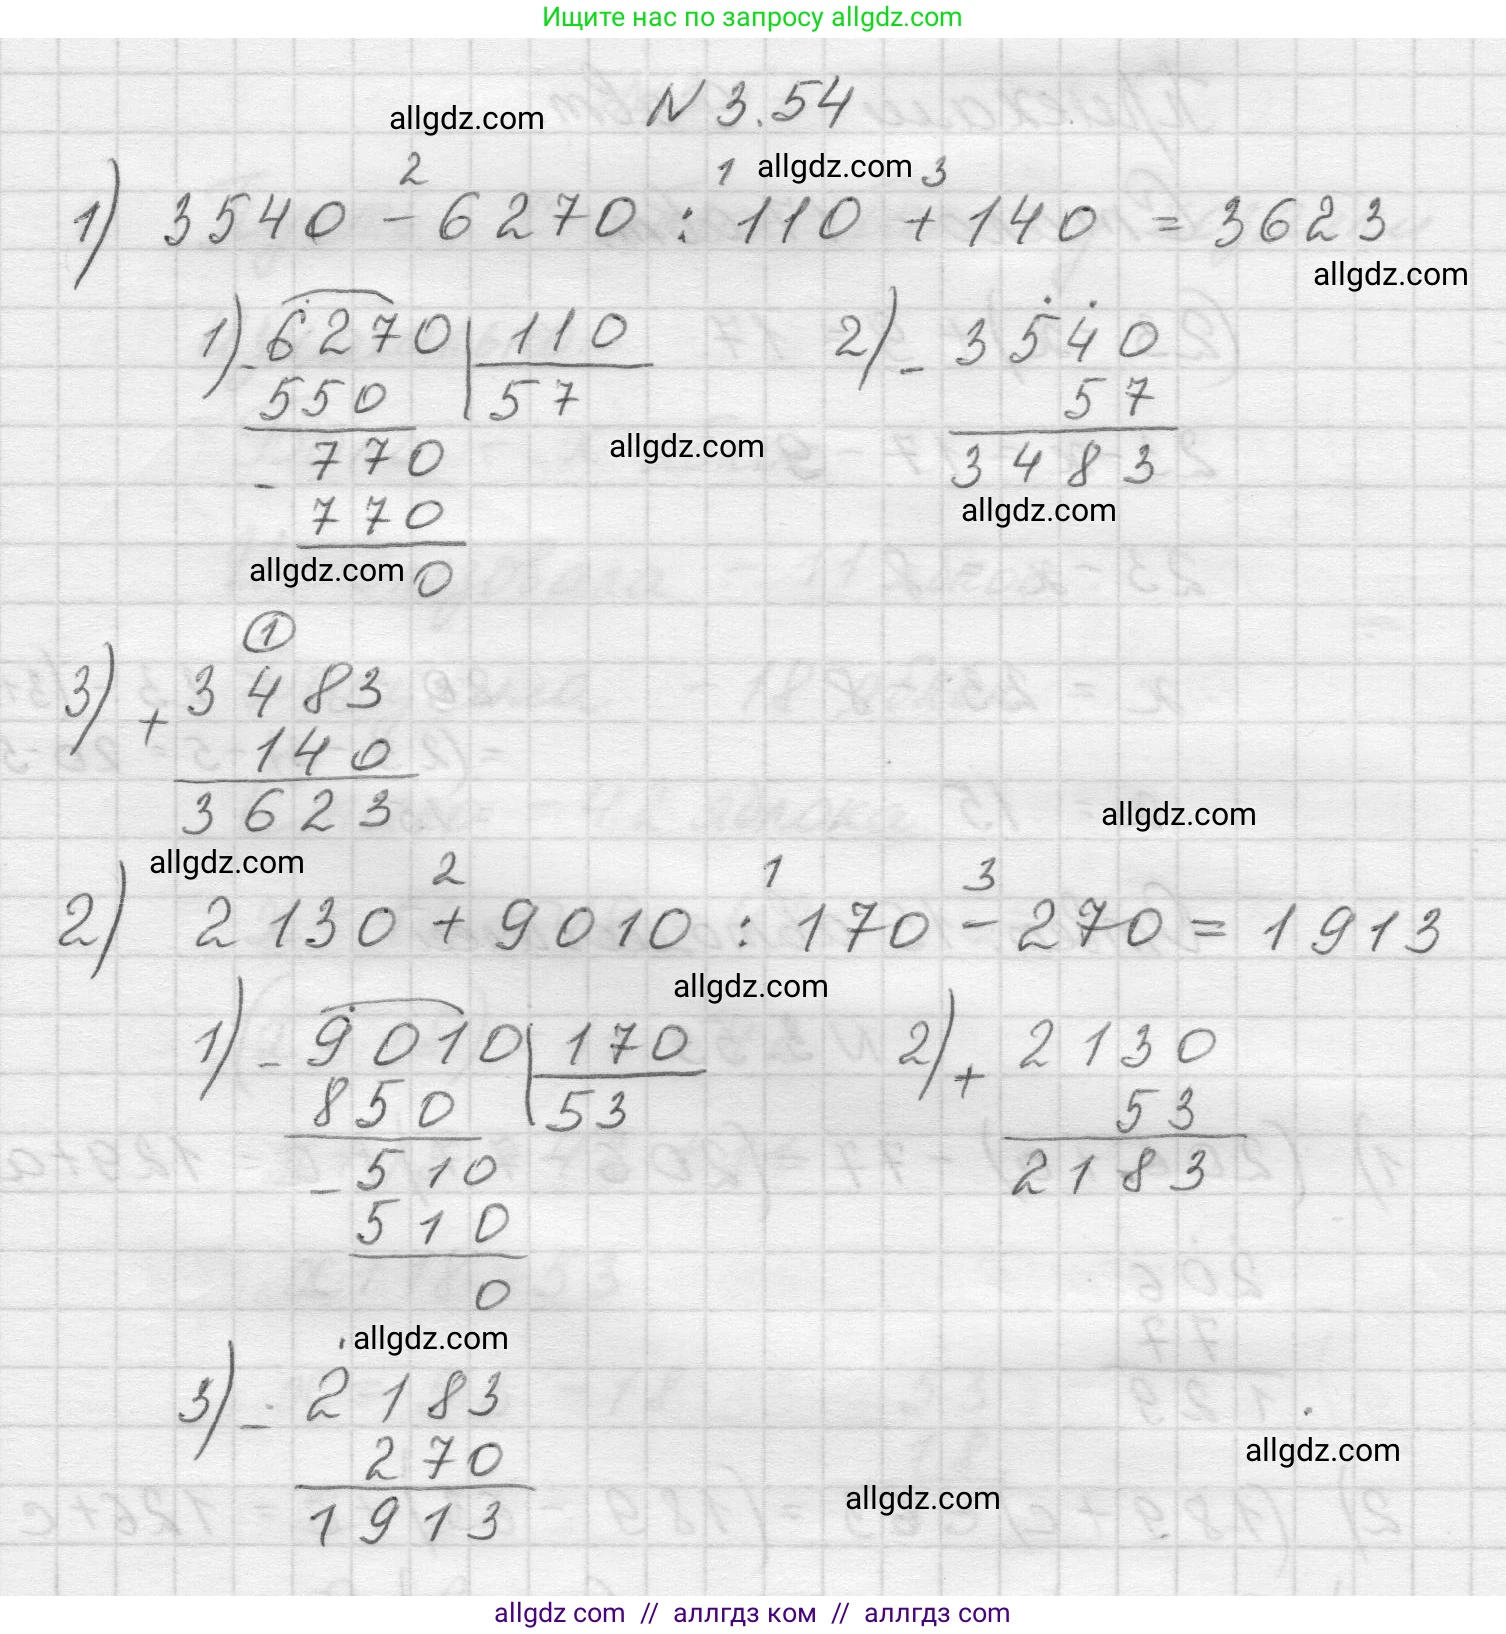 Ищите нас по запросу allgdz.com
N 3.54
allgdz.com
2 1 allgdz.com 3
1) 3540 - 6270 : 110 + 140 = 3623
allgdz.com
1) - 6270 | 110 2) - 3540
550 57 57
allgdz.com
- 770 3483
allgdz.com
770
allgdz.com 0
1
3) + 3483
140
3623
allgdz.com
allgdz.com
2 1 3
2) 2130 + 9010 : 170 - 270 = 1913
allgdz.com
1) - 9010 | 170 2) + 2130
850 53 53
- 510 2183
510
0
allgdz.com
3) - 2183
270
allgdz.com
allgdz.com
1913
allgdz com // аллгдз ком // аллгдз com